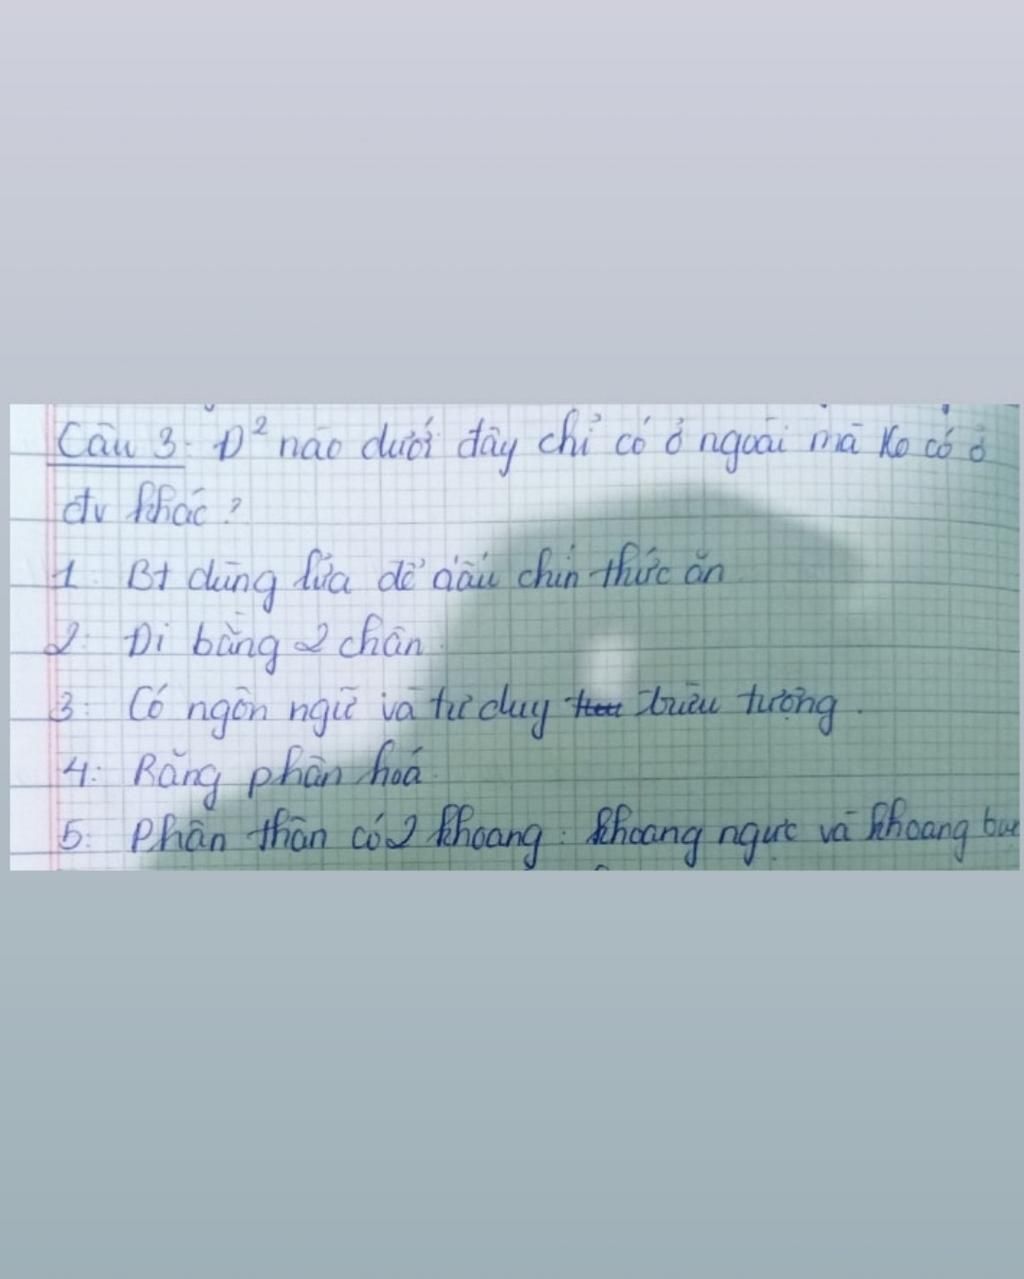 Câu 3: Đ² nào dưới đây chỉ có ở người mà ko có ở
đv khác?
1. Bt dùng lửa để nấu chín thức ăn
2. Đi bằng 2 chân.
3: Có ngôn ngữ và tư duy trừu tượng.
4: Răng phân hoá.
5: Phần thân có 2 khoang: khoang ngực và khoang